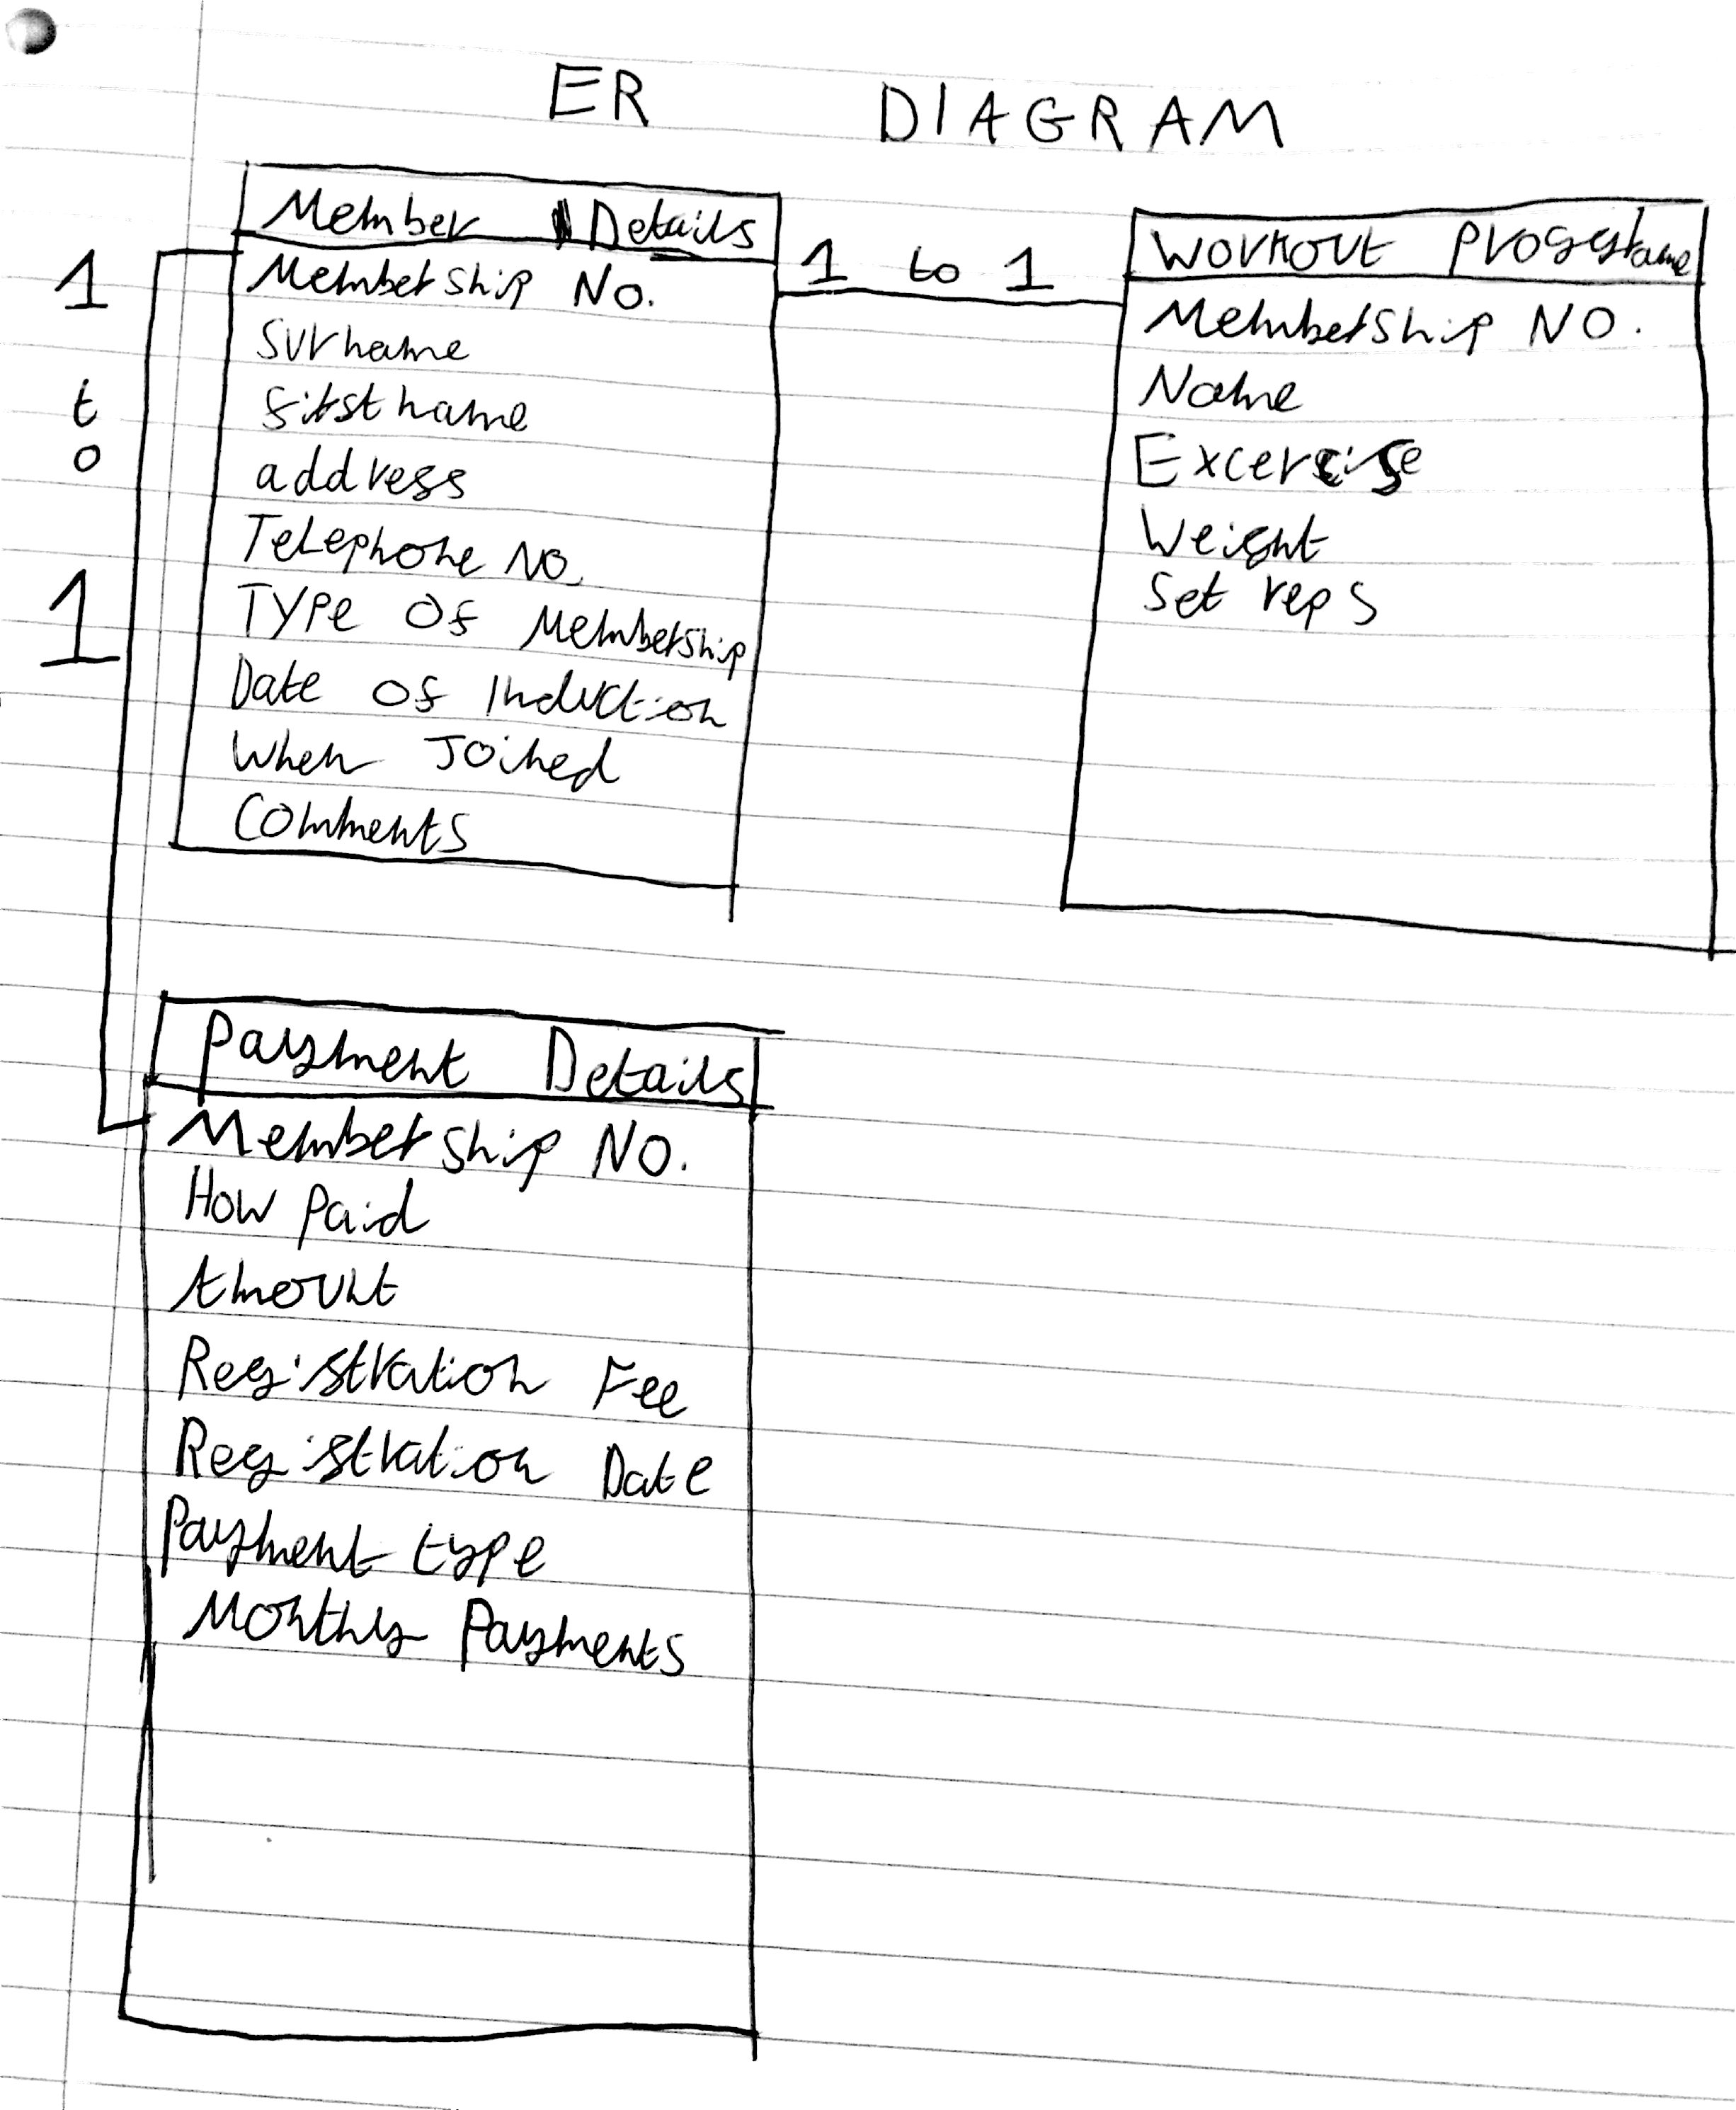 ER DIAGRAM
Member Details
Membership No.
Surname
firstname
address
Telephone No.
Type Of Membership
Date Of Induction
When Joined
Comments
1 to 1
Workout Programe
Membership NO.
Name
Excercise
Weight
Set reps
1
t
o
1
Payment Details
Membership NO.
How Paid
Amount
Registration Fee
Registration Date
Payment type
Monthly Payments